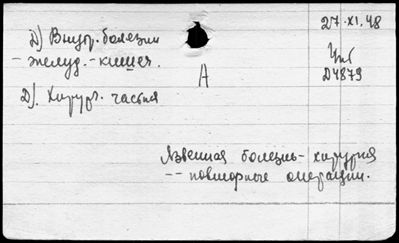 27.XI.48
Д) Внутр. болезни
- желуд. - кишеч.
А
Д4879
Д). Хирург. частная
Язвенная болезнь - хирургия
-- повторные операции.